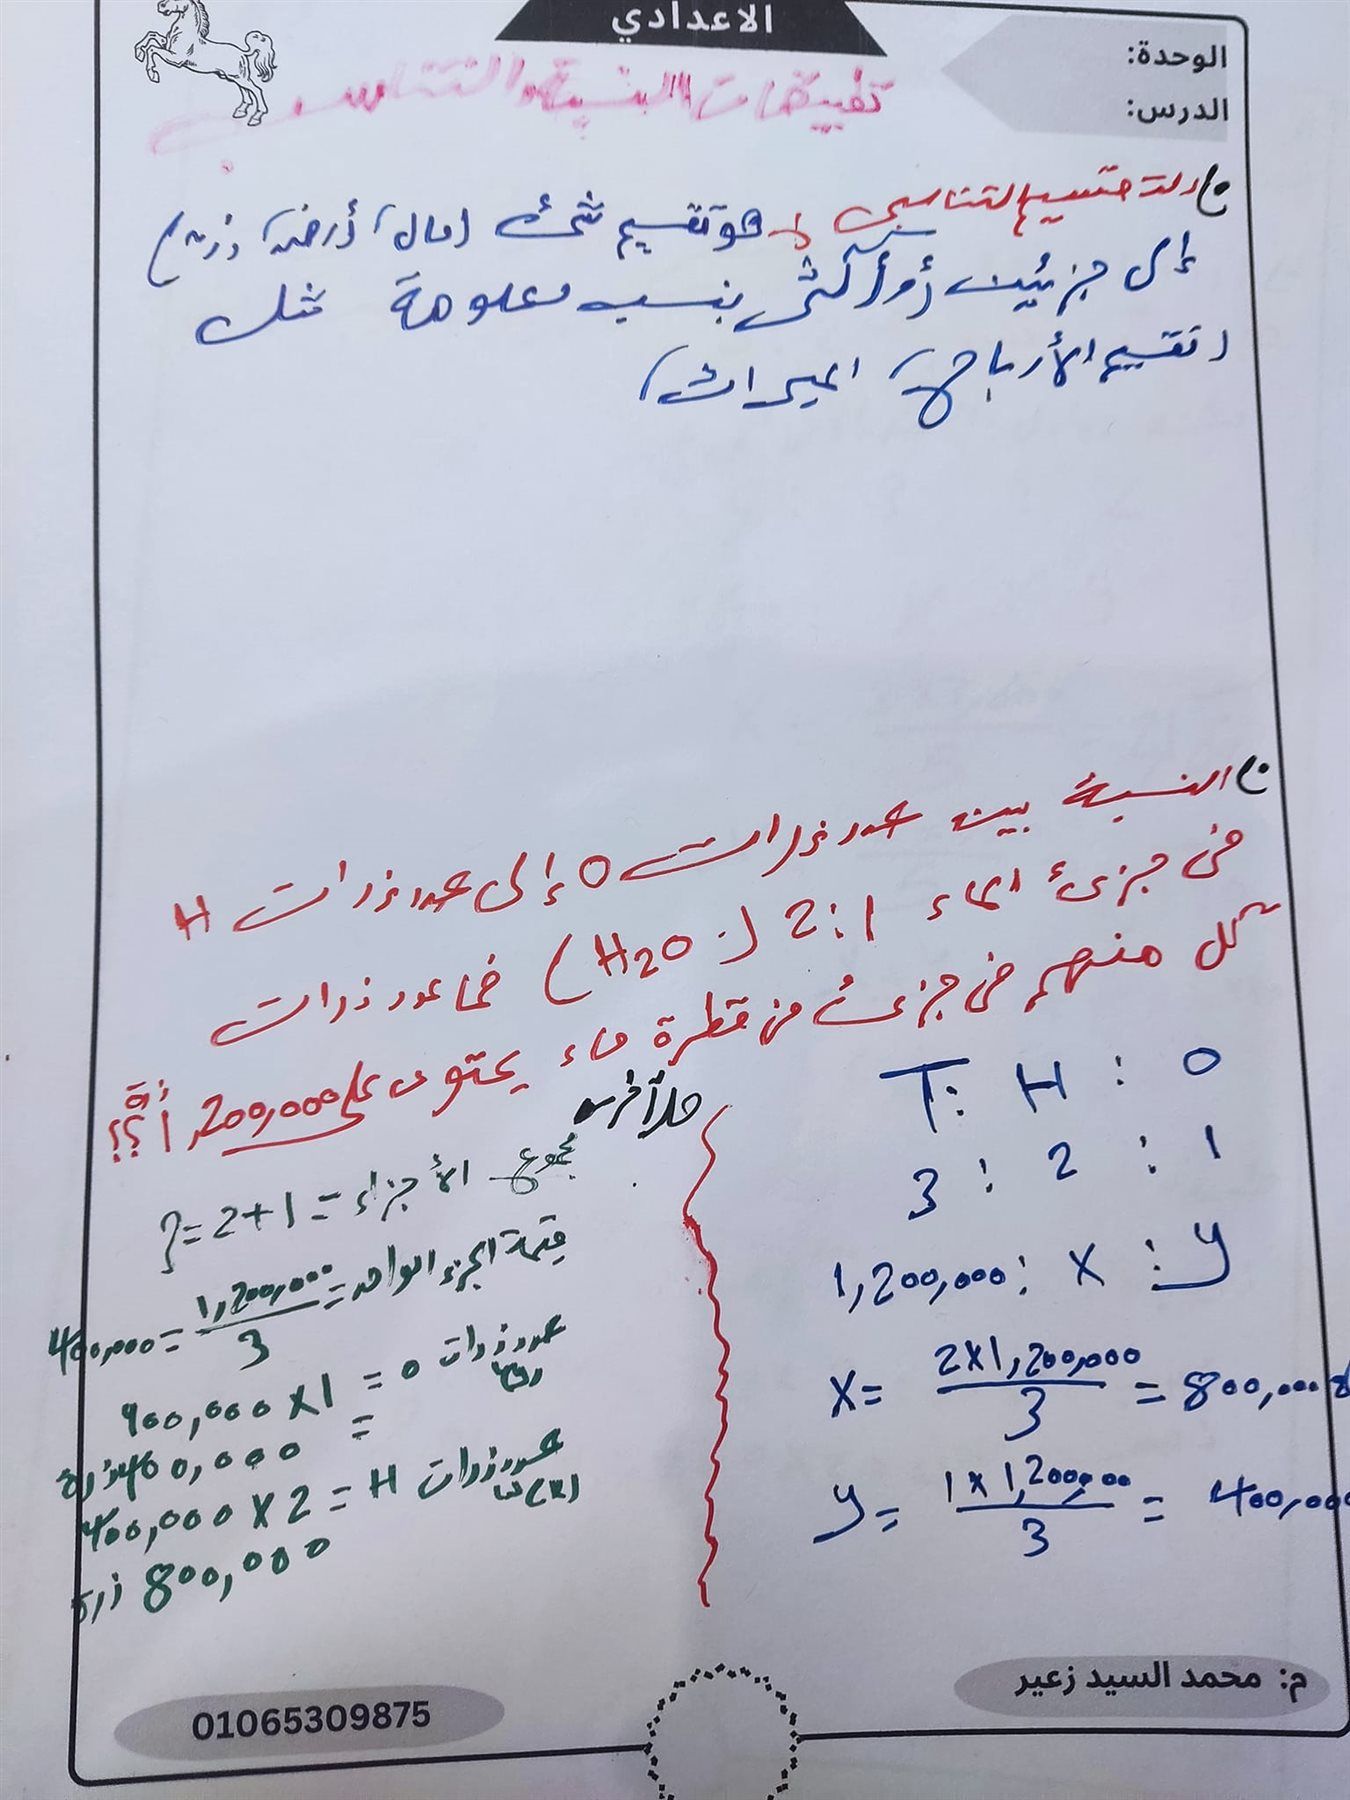 الاعدادي
الوحدة:
الدرس:
تطبيقات النسبة والتناسب
التقسيم التناسبي
هو تقسيم شئ (مال، أرض، وزن)
إلى جزئين (أو أكثر) بنسب معلومة مثل
(تقسيم الأرباح، الميراث)
النسبة بين عدد ذرات O إلى عدد ذرات H
في جزئ الماء 1:2 (H2O) فما عدد ذرات
كل منهم في جزئ من قطرة ماء يحتوى على 1,200,000 ذرة؟؟
O : H : T
1 : 2 : 3
y : x : 1,200,000
x = 2x1,200,000 / 3 = 800,000
y = 1x1,200,000 / 3 = 400,000
حل آخر
مجموع الأجزاء = 1+2=3
قيمة الجزء الواحد = 1,200,000 / 3 = 400,000
عدد ذرات O = 400,000 x1
= 400,000 ذرة
عدد ذرات H = 400,000 x 2
800,000 ذرة
م: محمد السيد زعير
01065309875